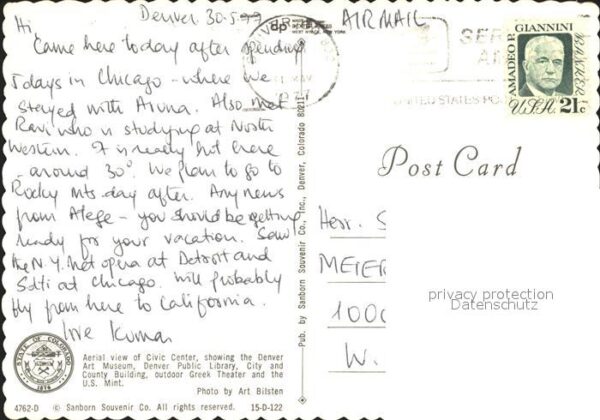 Denver 30-5-
AIRMAIL
Hi,
Came here today after spending
5 days in Chicago - where we
stayed with Aruna. Also met
Ravi who is studying at North
Western. It is really hot here
- around 30°. We plan to go to
Rocky Mts. day after. Any news
from - you should be getting
ready for your vacation. Saw
the N.Y. Met opera at Detroit and
at Chicago. Will probably
fly from here to California.
love Kumar
dp
Pub. by Sanborn Souvenir Co., Inc., Denver, Colorado 80211
AMADEO P. GIANNINI
BANKER
U.S.A. 21c
UNITED STATES
Post Card
Herr. S
MEIER
1000
W.
privacy protection
Datenschutz
STATE OF COLORADO
1876
Aerial view of Civic Center, showing the Denver
Art Museum, Denver Public Library, City and
County Building, outdoor Greek Theater and the
U.S. Mint.
Photo by Art Bilsten
4762-D © Sanborn Souvenir Co. All rights reserved. 15-D-122